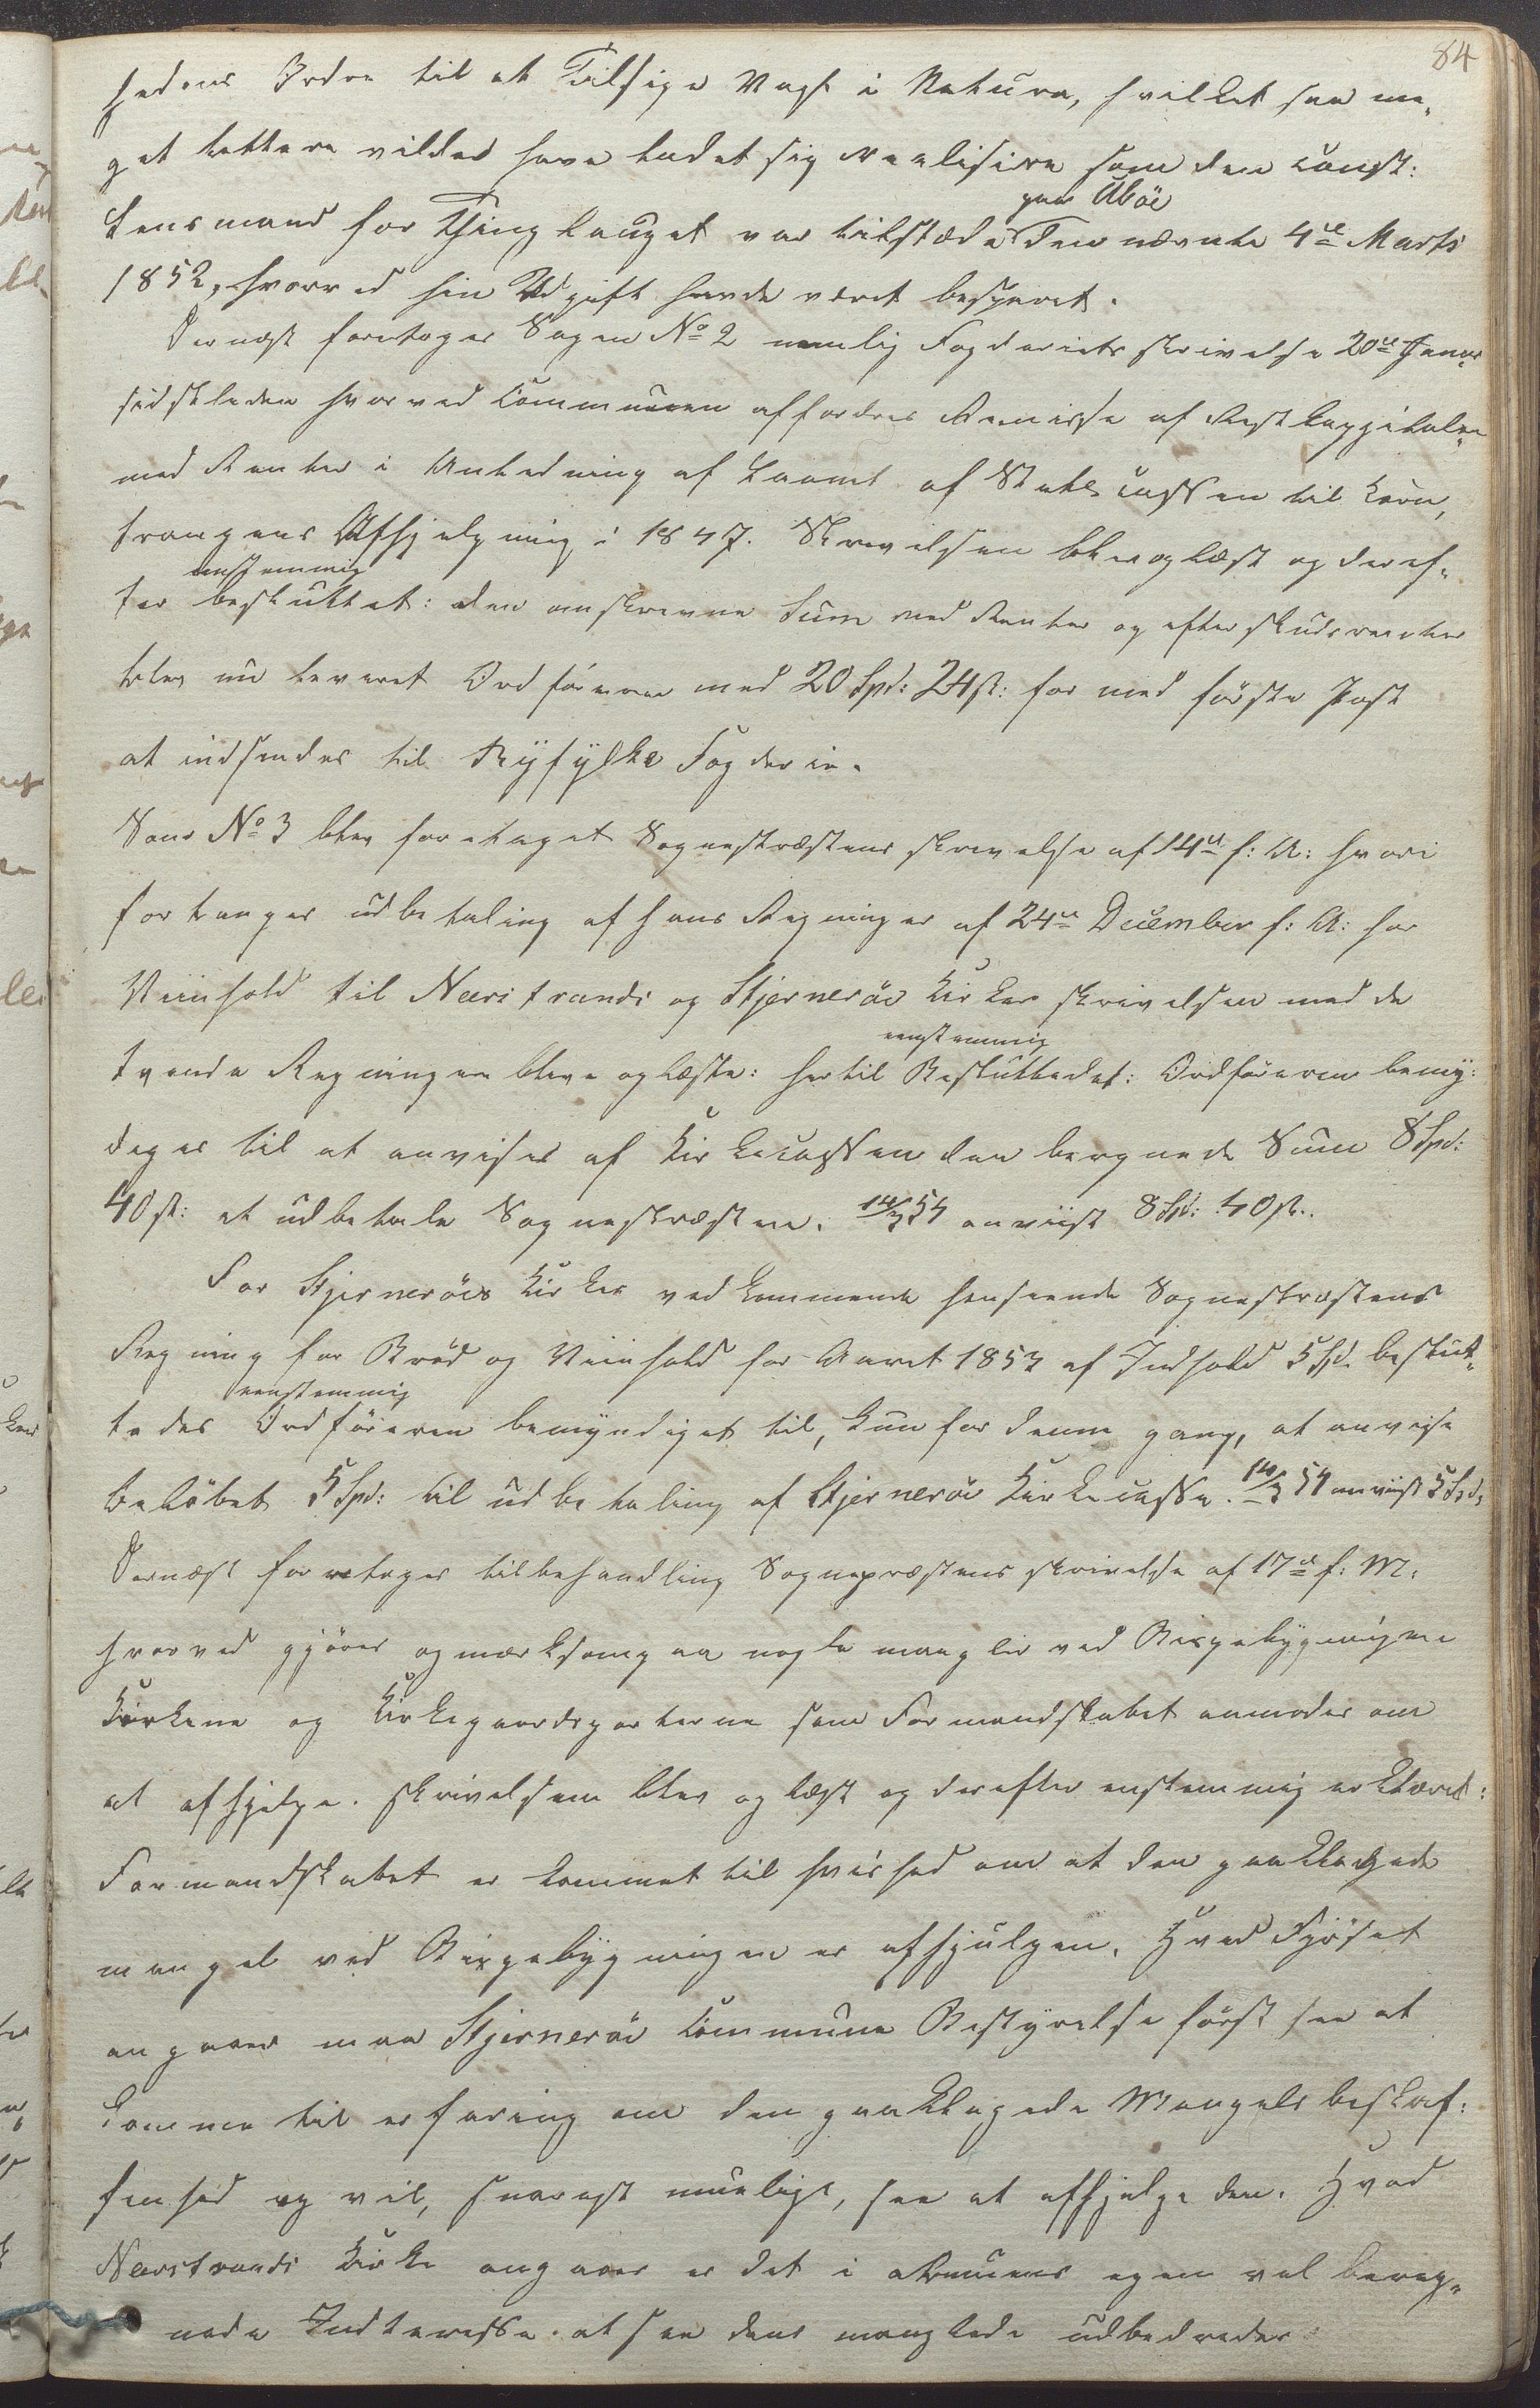 84
hedens Ordre til at Tilsige Vagt i Natura, hvilket saa me-
get lettere vildes have ladet sig realisire som den const:
paa Aböe
Lensmand for Thinglauget var tilstæde den nævnte 4de Marts
1852, hvorved hin Udgift havde været besparet.
Dernæst foretoges Sagen No 2 nemlig Fogderiets skrivelse 20de Janur
sidstleden hvorved Communen affordres Remisse af Restkapitalen
med Renter i Anledning af Laant af Statscassen til Korn-
trangens Afhjelpning i 1847. Skrivelsen blev oplæst og deref-
enstemmig
ter besluttet: den omskrevne Sum med Renter og efterskudsrenter
blev nu leveret Ordföreren med 20 Spd: 24 s: for med förste Post
at indsendes til Ryfylke Fogderie.
Som No 3 blev foretaget Sognepræstens skrivelse af 14de f: A: hvori
forlanges udbetaling af hans Regninger af 24de December f: A: for
Viinhold til Neerstrands og Stjerneröe Kirker skrivelsen med de
eenstemmig
tvende Regninger bleve oplæste: hertil Besluttedes: Ordföreren bemyn-
diges til at anvises af Kirkecassen den beregnede Sum 8 Spd:
40 s: at udbetale Sognepræsten. 14/3 54 anviist 8 Spd: 40 s.
For Stjerneröes Kirke vedkommende henseende Sognepræstens
Regning for Bröd og Viinhold for Aaret 1853 af Indhold 5 Spd. beslut-
eenstemmig
tedes Ordföreren bemyndiget til, kun for denne gang, at anvise
belöbet 5 Spd: til udbetaling af Stjerneröe Kirkecasse. 14/3 54 anviist 5 Spd,
Dernæst foretoges til behandling Sognepræstens skrivelse af 17de f: M:
hvorved gjöres opmærksom paa nogle mangler ved Bispebygningene
Kirkene og Kirkegaardsporterne som Formandskabet anmodes om
at afhjelpe. Skrivelsen blev oplæst og derefter enstemmig erklæret:
Formandskabet er kommet til hvished om at den paaklagede
mangel ved Bispebygningen er afhjulpen. Hvad Fjöset
angaaer maa Stjerneröe Commune Bestyrelse först see at
komme til erfaring om den paaklagede Mangels beskaf-
fenhed og vil, snarest mueligt, see at afhjelpe den. Hvad
Neerstrands Kirke angaaer er det i Almuens egen vel bereg-
nede Indteresse at see dens manglede udbedredes